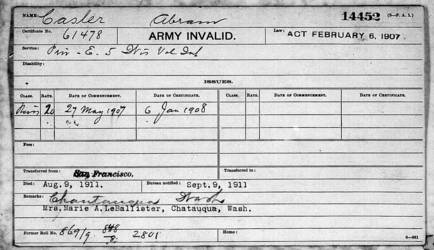 Name: Casler Abram 14452 (3-P.A.I.)
Certificate No. 61478 ARMY INVALID. Law: ACT FEBRUARY 6, 1907.
Service: Priv - E. 5 Wis Vol Inf
Disability:
ISSUES.
CLASS. RATE. DATE OF COMMENCEMENT. DATE OF CERTIFICATE. CLASS. RATE. DATE OF COMMENCEMENT. DATE OF CERTIFICATE.
20 27 May 1907 6 Jan 1908
Fees:
Transferred from: San Francisco. Transferred to:
Died: Aug. 9, 1911. Bureau notified: Sept. 9, 1911
Remarks: Chautauqua Wash
Mrs. Marie A. LeBallister, Chatauqua, Wash.
Former Roll No. 2801 Home: